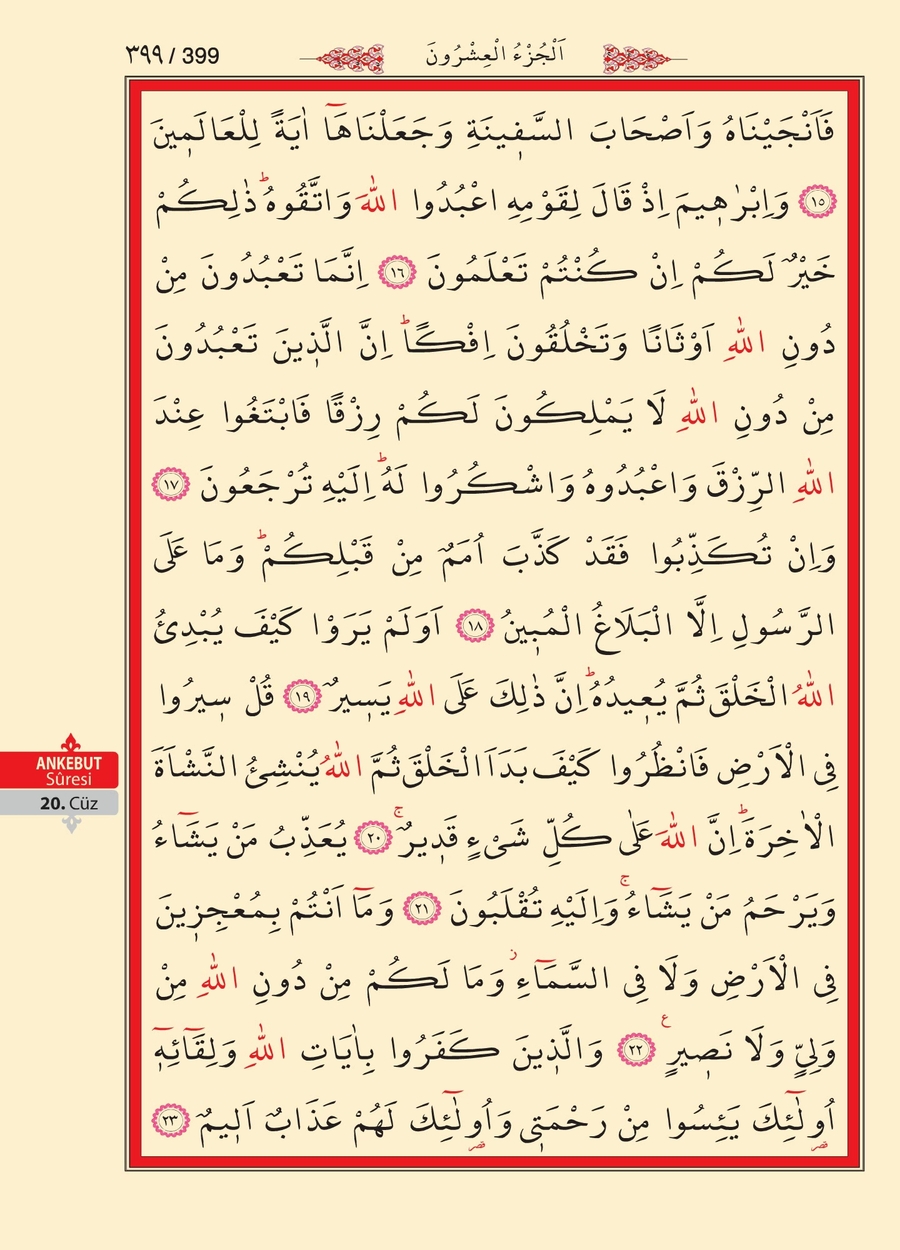 ٣٩٩ / 399
اَلْجُزْءُ الْعِشْرُونَ
فَاَنْجَيْنَاهُ وَاَصْحَابَ السَّفٖينَةِ وَجَعَلْنَاهَٓا اٰيَةً لِلْعَالَمٖينَ
﴿١٥﴾ وَاِبْرٰهٖيمَ اِذْ قَالَ لِقَوْمِهِ اعْبُدُوا اللّٰهَ وَاتَّقُوهُؕ ذٰلِكُمْ
خَيْرٌ لَكُمْ اِنْ كُنْتُمْ تَعْلَمُونَ ﴿١٦﴾ اِنَّمَا تَعْبُدُونَ مِنْ
دُونِ اللّٰهِ اَوْثَانًا وَتَخْلُقُونَ اِفْكًاؕ اِنَّ الَّذٖينَ تَعْبُدُونَ
مِنْ دُونِ اللّٰهِ لَا يَمْلِكُونَ لَكُمْ رِزْقًا فَابْتَغُوا عِنْدَ
اللّٰهِ الرِّزْقَ وَاعْبُدُوهُ وَاشْكُرُوا لَهُؕ اِلَيْهِ تُرْجَعُونَ ﴿١٧﴾
وَاِنْ تُكَذِّبُوا فَقَدْ كَذَّبَ اُمَمٌ مِنْ قَبْلِكُمْؕ وَمَا عَلَى
الرَّسُولِ اِلَّا الْبَلَاغُ الْمُبٖينُ ﴿١٨﴾ اَوَلَمْ يَرَوْا كَيْفَ يُبْدِئُ
اللّٰهُ الْخَلْقَ ثُمَّ يُعٖيدُهُؕ اِنَّ ذٰلِكَ عَلَى اللّٰهِ يَسٖيرٌ ﴿١٩﴾ قُلْ سٖيرُوا
فِى الْاَرْضِ فَانْظُرُوا كَيْفَ بَدَاَ الْخَلْقَ ثُمَّ اللّٰهُ يُنْشِئُ النَّشْاَةَ
الْاٰخِرَةَؕ اِنَّ اللّٰهَ عَلٰى كُلِّ شَیْءٍ قَدٖيرٌۚ ﴿٢٠﴾ يُعَذِّبُ مَنْ يَشَٓاءُ
وَيَرْحَمُ مَنْ يَشَٓاءُۚ وَاِلَيْهِ تُقْلَبُونَ ﴿٢١﴾ وَمَٓا اَنْتُمْ بِمُعْجِزٖينَ
فِى الْاَرْضِ وَلَا فِى السَّمَٓاءِؗ وَمَا لَكُمْ مِنْ دُونِ اللّٰهِ مِنْ
وَلِیٍّ وَلَا نَصٖيرٍ ع ﴿٢٢﴾ وَالَّذٖينَ كَفَرُوا بِاٰيَاتِ اللّٰهِ وَلِقَٓائِهٖٓ
اُولٰٓئِكَ يَئِسُوا مِنْ رَحْمَتٖى وَاُولٰٓئِكَ لَهُمْ عَذَابٌ اَلٖيمٌ ﴿٢٣﴾
قصر قصر
ANKEBUT
Sûresi
20. Cüz